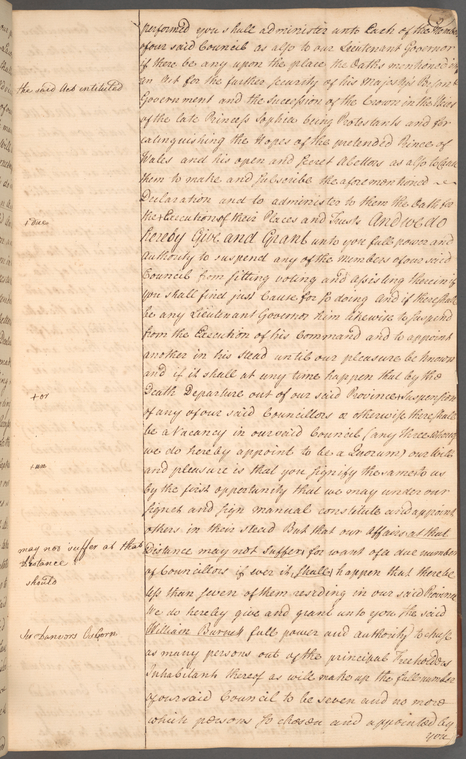 performed you shall administer unto Each of the Members
of our said Council as also to our Lieutenant Governor
if there be any upon the place the Oaths mentioned in
the said Act entituled
an Act for the further security of his Majestys Person &
Government and the Succession of the Crown in the Heirs
of the late Princess Sophia being Protestants and for
extinguishing the Hopes of the pretended Prince of
Wales and his open and secret Abettors as also to cause
them to make and subscribe the aforementioned
Declaration and to administer to them the Oath for
the Execution of their Places and Trusts And we do
hereby Give and Grant unto you full power and
Authority to suspend any of the members of our said
Council from sitting voting and assisting therein if
you shall find just Cause for so doing And if there shall
be any Lieutenant Governor him likewise to suspend
from the Execution of his Command and to appoint
another in his stead until our pleasure be known
and if it shall at any time happen that by the
Death Departure out of our said Province Suspension
+ or
of any of our said Councillors or otherwise there shall
be a Vacancy in our said Council (any three whereof
we do hereby appoint to be a Quorum) our Will
and pleasure is that you signify the same to us
by the first opportunity that we may under our
signet and sign manual constitute and appoint
others in their stead But that our Affairs at that
may not suffer at that
Distance
Distance may not suffer for want of a due number
of Councillors if ever it shall happen that there be
should
less than seven of them residing in our said Province
We do hereby give and grant unto you the said
William Burnet full power and authority to chuse
as many persons out of the principal Freeholders
Inhabitants thereof as will make up the full number
of our said Council to be seven and no more
which persons so chosen and appointed by
you